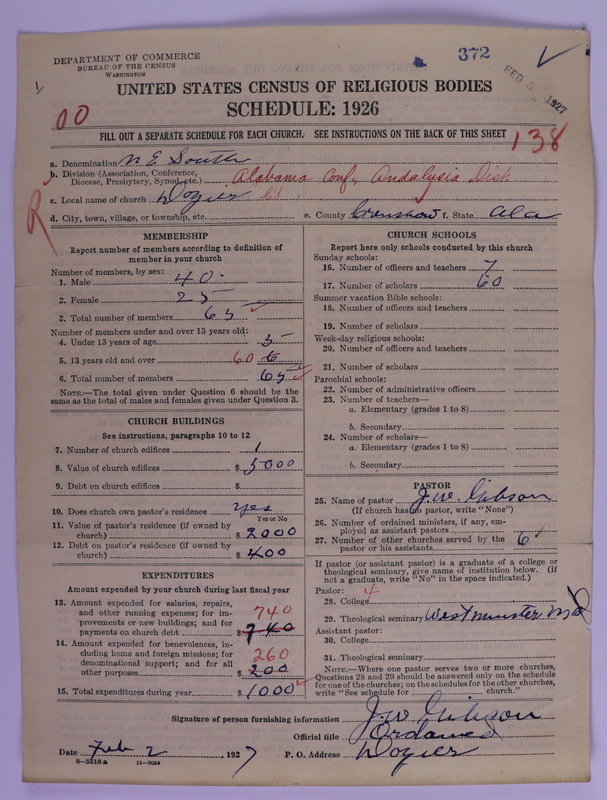 372
FEB 5 1927
DEPARTMENT OF COMMERCE
BUREAU OF THE CENSUS
WASHINGTON
UNITED STATES CENSUS OF RELIGIOUS BODIES
SCHEDULE: 1926
00
138
FILL OUT A SEPARATE SCHEDULE FOR EACH CHURCH. SEE INSTRUCTIONS ON THE BACK OF THIS SHEET
a. Denomination M E South
b. Division (Association, Conference, Diocese, Presbytery, Synod, etc.) Alabama Conf, Andalysia Dist
c. Local name of church Dozier Ch
d. City, town, village, or township, etc. e. County Crenshaw f. State Ala
MEMBERSHIP
Report number of members according to definition of member in your church
Number of members, by sex:
1. Male 40
2. Female 25
3. Total number of members 65
Number of members under and over 13 years old:
4. Under 13 years of age 5
5. 13 years old and over 60
6. Total number of members 65
NOTE.—The total given under Question 6 should be the same as the total of males and females given under Question 3.
CHURCH BUILDINGS
See instructions, paragraphs 10 to 12
7. Number of church edifices 1
8. Value of church edifices $ 5000
9. Debt on church edifices $
10. Does church own pastor's residence yes
Yes or No
11. Value of pastor's residence (if owned by church) $ 2000
12. Debt on pastor's residence (if owned by church) $ 400
EXPENDITURES
Amount expended by your church during last fiscal year
13. Amount expended for salaries, repairs, and other running expenses; for improvements or new buildings; and for payments on church debt $ 740 740
14. Amount expended for benevolences, including home and foreign missions; for denominational support; and for all other purposes $ 260 200
15. Total expenditures during year $ 1000
CHURCH SCHOOLS
Report here only schools conducted by this church
Sunday schools:
16. Number of officers and teachers 7
17. Number of scholars 60
Summer vacation Bible schools:
18. Number of officers and teachers
19. Number of scholars
Week-day religious schools:
20. Number of officers and teachers
21. Number of scholars
Parochial schools:
22. Number of administrative officers
23. Number of teachers—
a. Elementary (grades 1 to 8)
b. Secondary
24. Number of scholars—
a. Elementary (grades 1 to 8)
b. Secondary
PASTOR
25. Name of pastor J. W. Gibson
(If church has no pastor, write "None")
26. Number of ordained ministers, if any, employed as assistant pastors
27. Number of other churches served by the pastor or his assistants 6
If pastor (or assistant pastor) is a graduate of a college or theological seminary, give name of institution below. (If not a graduate, write "No" in the space indicated.)
Pastor: 4
28. College
29. Theological seminary Westminster Md
Assistant pastor:
30. College
31. Theological seminary
NOTE.—Where one pastor serves two or more churches, Questions 28 and 29 should be answered only on the schedule for one of the churches; on the schedules for the other churches, write "See schedule for church."
Signature of person furnishing information J. W. Gibson
Official title Ordained
Date Feb 2, 1927 P. O. Address Dozier
8—5518a 11—9054